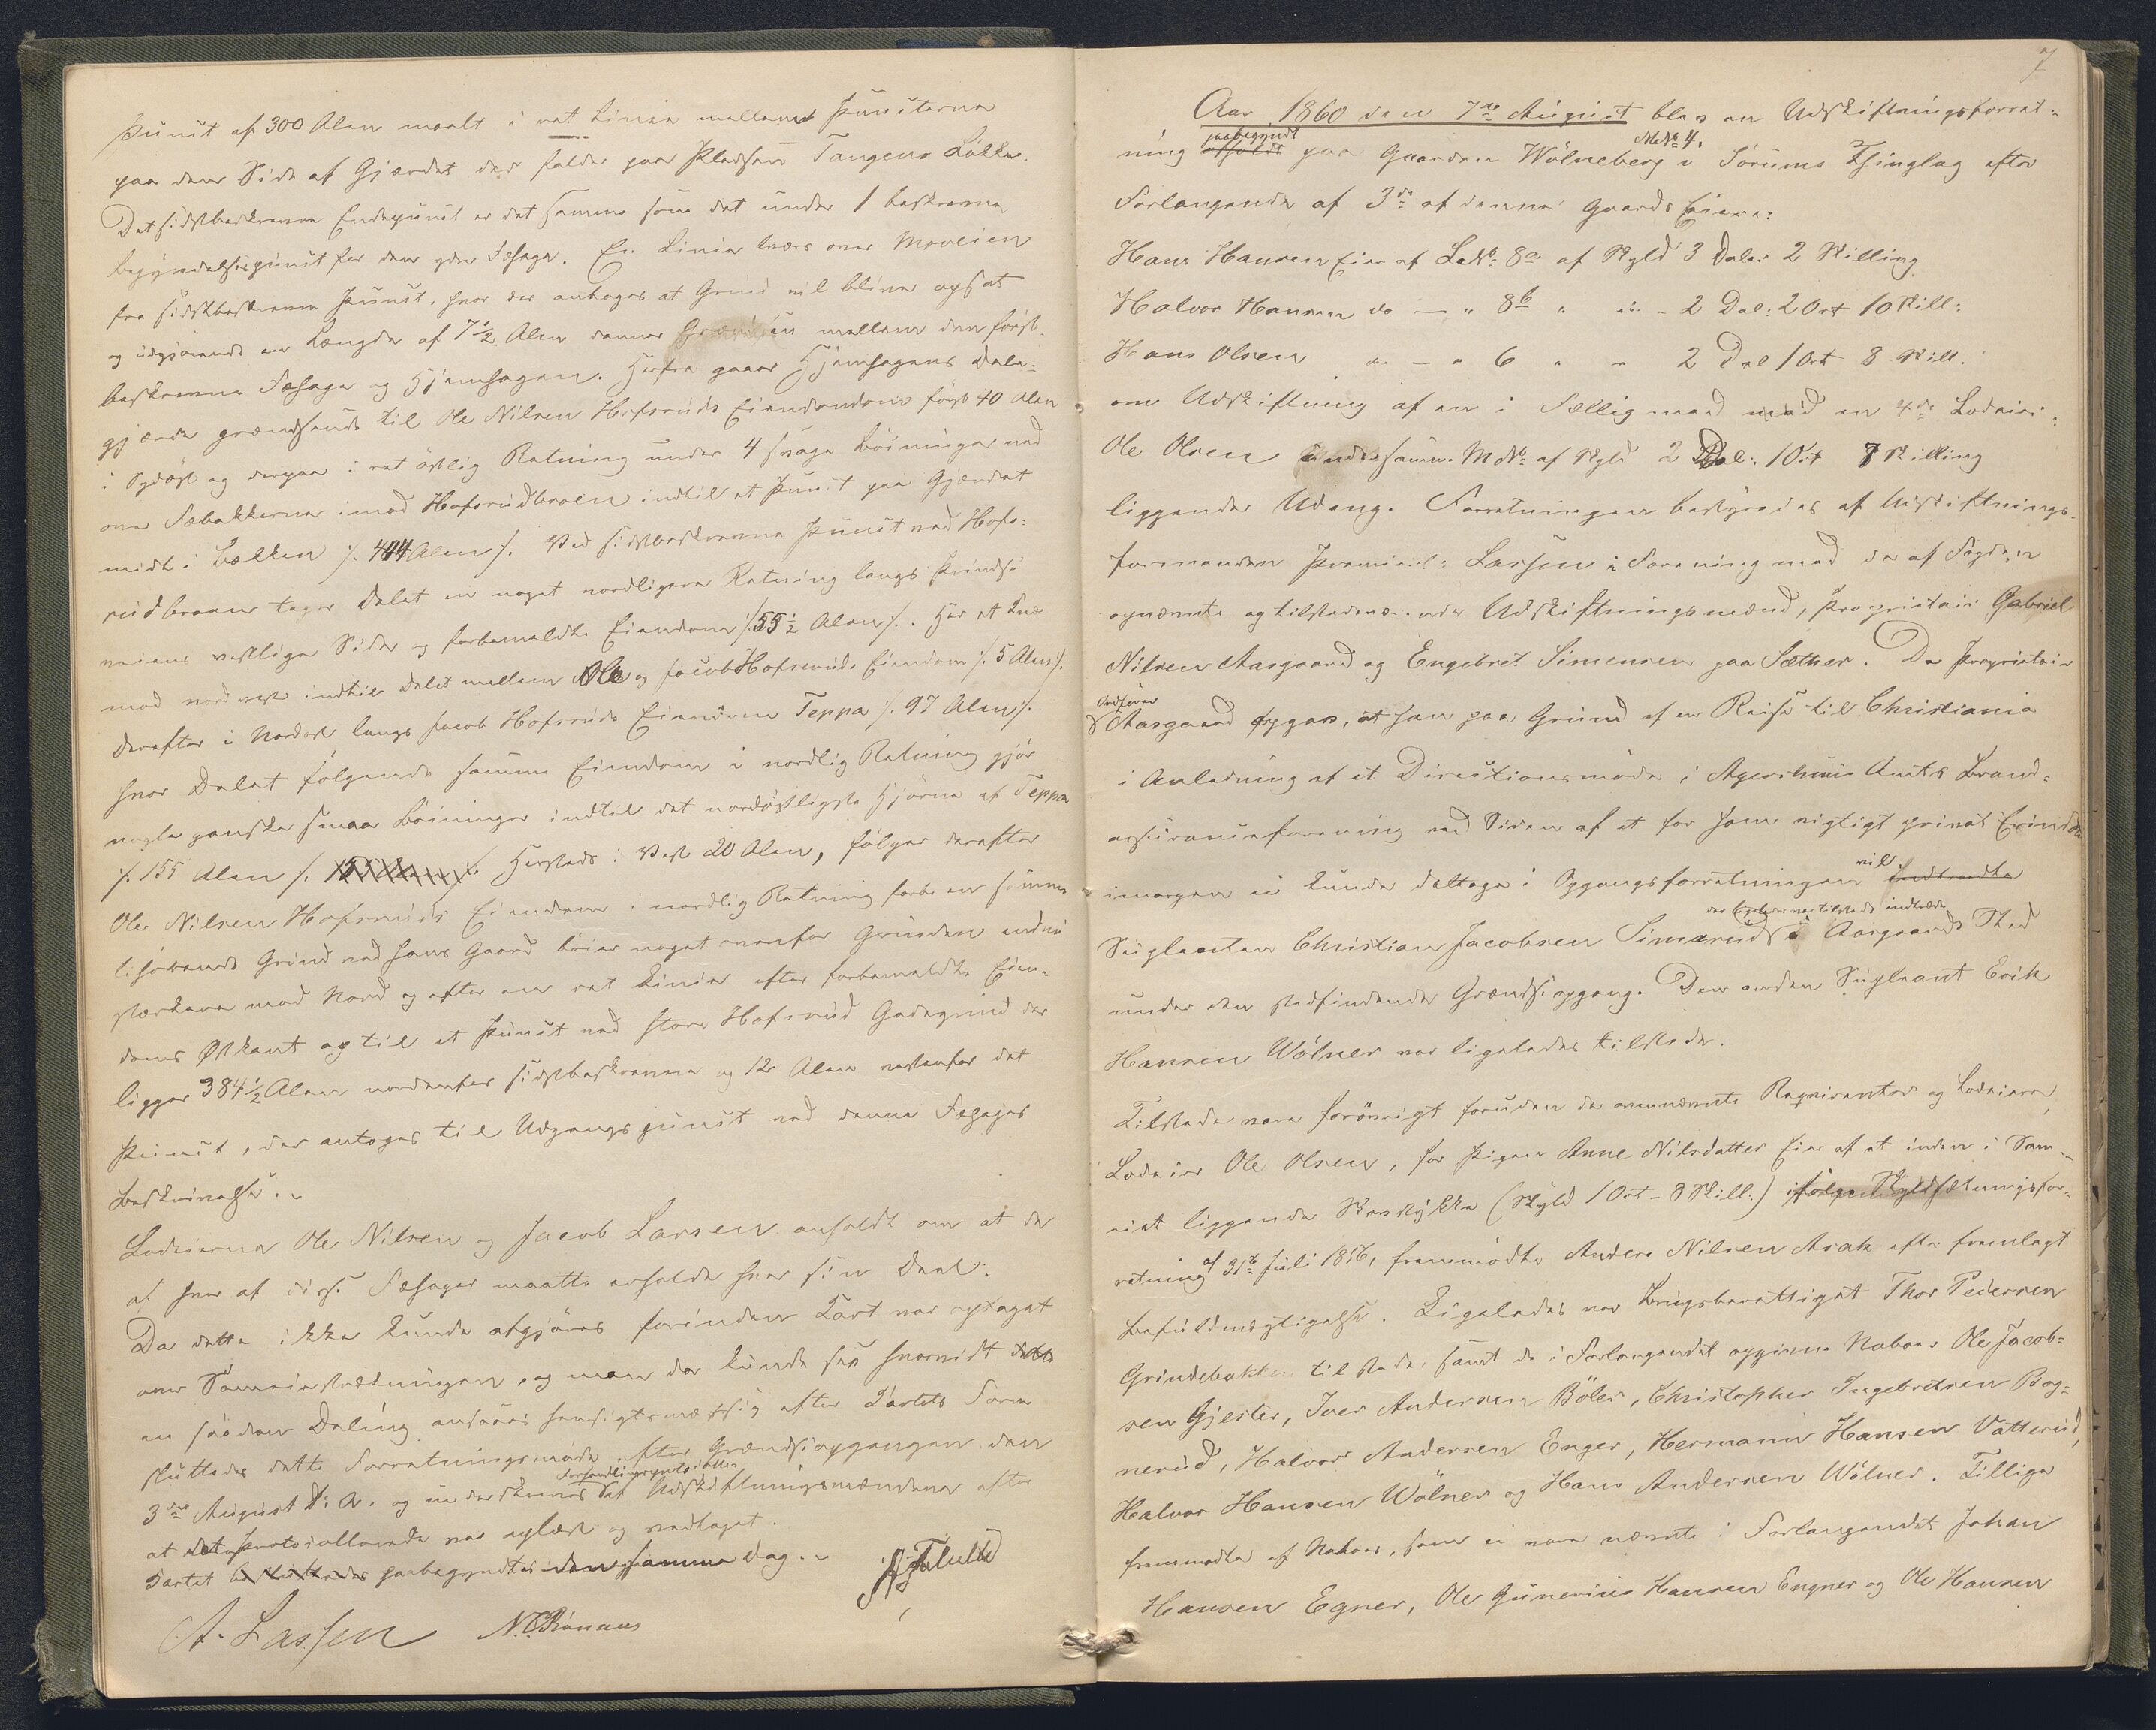 Punct af 300 Alen maalt i ret Linie mellem Puncterne
paa den Side af Gjerdet der falder paa Pladsen Tangens Løkke.
Det sidstbeskrevne Endepunct er det samme som det under 1 beskrevne
Begyndelsespunct for den ydre Fæhage. En Linie tværs over Moveien
fra sidstbeskrevne Punct, hvor der antages at Grind vil blive opsat
og udgjørende en Længde af 7 1/2 Alen danner Grændsen mellem den først-
beskrevne Fæhage og Hjemhagen. Herfra gaaer Hjemhagens Dele-
gjerde grændsende til Ole Nilsen Hofsruds Eiendom først 40 Alen
i Sydøst og derpaa i ret østlig Retning under 4 svage Bøininger ned
over Fæbakkerne imod Hofsrudbroen indtil et Punct paa Gjerdet
midt i Bækken /: 444 Alen :/. Ved sidstbeskrevne Punct ved Hofs-
rudbroen tager Delet en noget nordligere Retning langs Prindse-
veiens vestlige Side og forbemeldte Eiendom /: 55 1/2 Alen :/. Her et Knæ
mod nordvest indtil Delet mellem Ole og Jacob Hofsruds Eiendom /: 5 Alen :/.
derefter i Nordost langs Jacob Hofsruds Eiendom Teppa /: 97 Alen :/.
hvor Delet følgende samme Eiendom i nordlig Retning gjør
nogle ganske smaa Bøininger indtil det nordøstligste Hjørne af Teppa
/: 155 Alen :/. Hersteds i Vest 20 Alen, følger derefter
Ole Nilsen Hofsruds Eiendom i nordlig Retning forbi en samme
tilhørende Grind ved hans Gaard bøier noget ovenfor Grinden endnu
stærkere mod Nord og efter en ret Linie efter forbemeldte Eien-
doms Østkant og til et Punct ved store Hofsrud Gadegrind der
ligger 384 1/2 Alen nordenfor sidstbeskrevne og 12 Alen vestenfor det
Punct, der antoges til Udgangspunct ved denne Fægages
Beskrivelse.
Lodeierne Ole Nilsen og Jacob Larsen anholdt om at de
at hver af disse Fæhager maatte erholde hver sin Deel.
Da dette ikke kunde afgjøres forinden Kart var optaget
over Sameiestrækningen, og man da kunde see hvorvidt
en saadan Deling ansaaes hensigtsmæssig efter Kartets Form
sluttedes dette Forretningsmøde efter Grændseopgangen den
3die August d: A. og underskrives Forhandlingsprotocollen af Udskiftningsmændene efter
at det Protocollerede var oplæst og vedtaget.
Kartet paabegyndtes den samme Dag.
A. Lassen N. C. Rønaas

7
Aar 1860 den 7de August blev en Udskiftningsforret-
ning paabegyndt paa Gaarden Wølneberg MNo 4. i Sørums Thinglag efter
Forlangende af 3de af denne Gaards Eiere:
Hans Hansen Eier af LNo 8a af Skyld 3 Daler 2 Skilling
Halvor Hansen do — " 8b " " - 2 Dal: 2 Ort 10 Skill:
Hans Olsen do - " 6 " - 2 Dal 1 Ort 8 Skill.
om Udskiftning af en i Fællig med en 4de Lodeier:
Ole Olsen under samme MNo af Skyld 2 Dal: 1 Ort 7 Skilling
liggende Udeng. Forretningen bestyredes af Udskiftnings-
formanden Premierl: Lassen i Forening med de af Fogden
opnævnte og tilstedeværende Udskiftningsmænd, Proprietair Gabriel
Nilsen Aasgaard og Engebret Simensen paa Sæther. Da Proprietair
Aasgaard opgav, at han paa Grund af en Reise til Christiania
i Anledning af et Directionsmøde i Agershuus Amts Brand-
assuranceforening ved Siden af et for ham vigtigt privat Erinde
imorgen ei kunde deltage i Opgangsforretningen vil
Supleanten Christian Jacobsen Simerud, der ligeledes var tilstede indtræde i Aasgaards Sted
under den stedfindende Grændseopgang. Den anden Supleant Erik
Hansen Wølner var ligeledes tilstede.
Tilstede vare forøvrigt foruden de ovennævnte Reqvirenter og Lodeiere,
Lodeier Ole Olsen, for Pigen Anne Nilsdatter Eier af et inden i Sam-
eiet liggende Skovstykke (Skyld 1 Ort - 8 Skill.) ifølge Skyldsætningsfor-
retning af 31te Juli 1856, fremmødte Anders Nilsen Asak efter fremlagt
Befuldmægtigelse. Ligeledes var Brugsberettiget Thor Pedersen
Grindebakken tilstede, samt de i Forlangendet opgivne Naboer Ole Jacob-
sen Gjester, Iver Andersen Böler, Christopher Ingebretsen Bog-
nerud, Halvor Andersen Enger, Hermann Hansen Vatterud,
Halvor Hansen Wölner og Hans Andersen Wölner. Tillige
fremmødte af Naboer, som ei vare nævnte i Forlangendet Johan
Hansen Egner, Ole Gunerius Hansen Engner og Ole Hansen